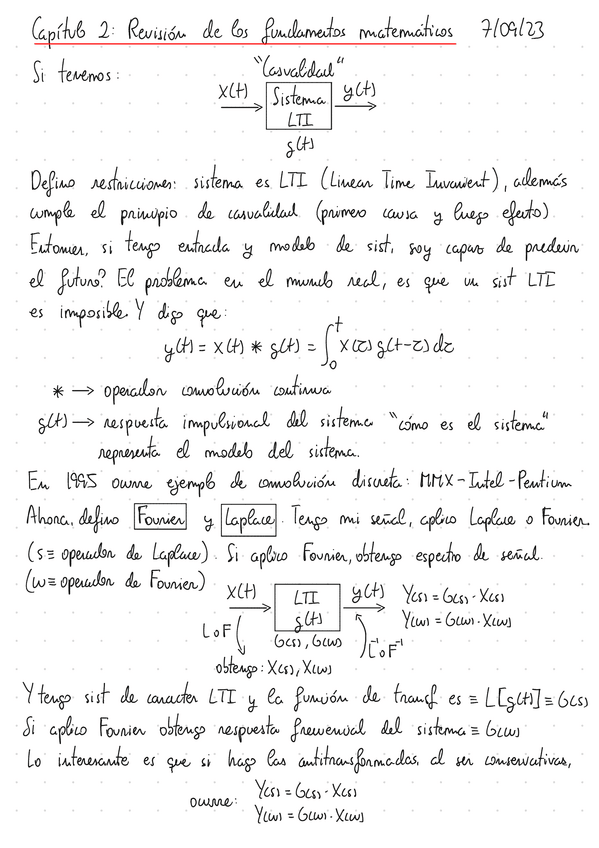 Capítulo 2: Revisión de los fundamentos matemáticos 7/09/23
Si tenemos:
"Casualidad"
x(t) Sistema LTI y(t)
g(t)
Defino restricciones: sistema es LTI (Linear Time Invarient), además
cumple el principio de casualidad (primero causa y luego efecto)
Entonces, si tengo entrada y modelo de sist, soy capaz de predecir
el futuro? El problema en el mundo real, es que un sist LTI
es imposible. Y digo que:
y(t) = x(t) * g(t) = ∫₀ᵗ x(τ) g(t-τ) dτ
* → operador convolución continua
g(t) → respuesta impulsional del sistema "cómo es el sistema"
representa el modelo del sistema.
En 1995 ocurre ejemplo de convolución discreta: MMX-Intel-Pentium
Ahora, defino Fourier y Laplace. Tengo mi señal, aplico Laplace o Fourier.
(s ≡ operador de Laplace). Si aplico Fourier, obtengo espectro de señal.
(w ≡ operador de Fourier)
x(t) LTI g(t) y(t) Y(s) = G(s) · X(s)
Y(w) = G(w) · X(w)
L o F G(s), G(w) L⁻¹ o F⁻¹
obtengo: X(s), X(w)
Y tengo sist de caracter LTI y la función de transf es ≡ L[g(t)] ≡ G(s)
Si aplico Fourier obtengo respuesta frecuencial del sistema ≡ G(w)
Lo interesante es que si hago las antitransformadas, al ser conservativas,
ocurre: Y(s) = G(s) · X(s)
Y(w) = G(w) · X(w)